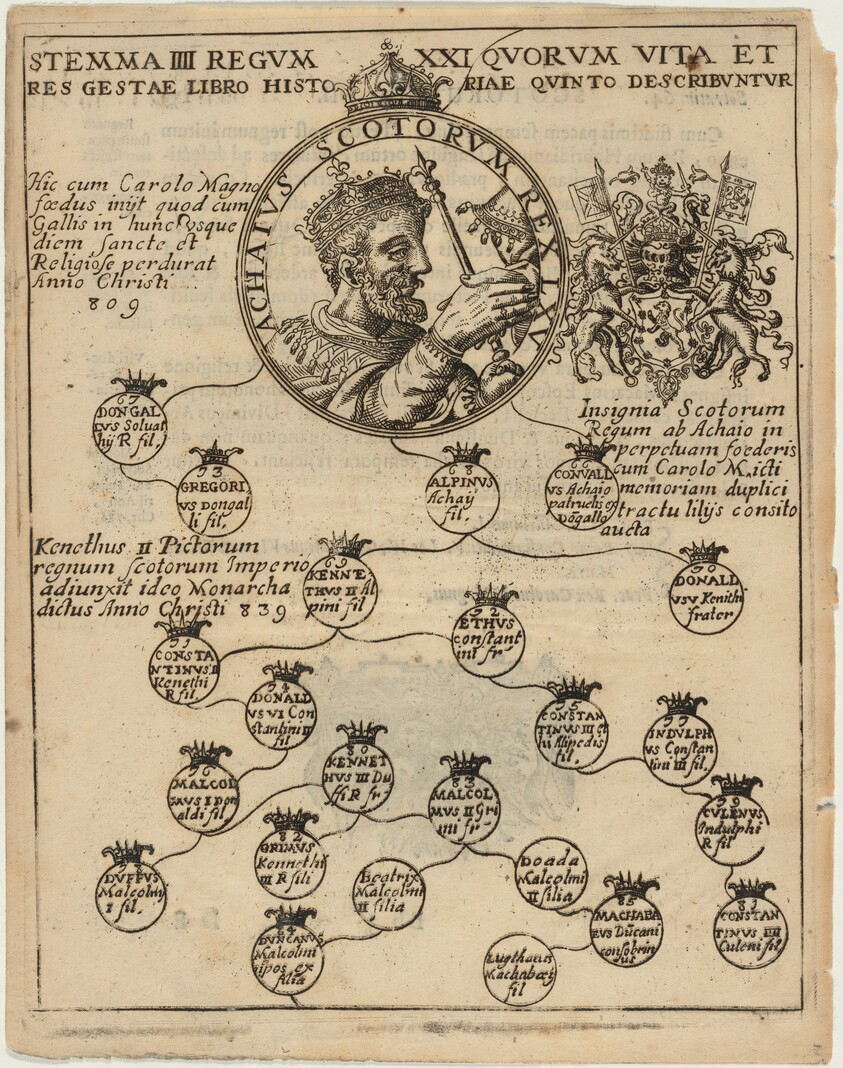 STEMMA IIII REGVM XXI QVORVM VITA ET
RES GESTAE LIBRO HISTO RIAE QVINTO DESCRIBVNTVR
ACHAIVS SCOTORVM REX LXV
Hic cum Carolo Magno
fœdus inijt quod cum
Gallis in hunc vsque
diem sancte et
Religiose perdurat
Anno Christi
809
Insignia Scotorum
Regum ab Achaio in
perpetuam foederis
cum Carolo M. icti
memoriam duplici
tractu lilijs consito
aucta
67
DONGAL
LVS Soluat
hij R fil.
73
GREGORI
VS Dongal
li fil.
68
ALPINVS
Achaij
fil.
66
CONVALL
VS Achaio
patruelis ex
Dōgallo
Kenethus II Pictorum
regnum scotorum Imperio
adiunxit ideo Monarcha
dictus Anno Christi 839
69
KENNE
THVS II Al
pini fil
70
DONALD
VS V Kenithi
frater
71
CONSTA
NTINVS II
Kenethi
R fil.
72
ETHVS
constant
ini fr
74
DONALD
VS VI Con
stantini II
fil
75
CONSTAN
TINVS III et
hi Alipedis
fil.
77
INDVLPH
VS Constan
tini III fil.
76
MALCOL
MVS I Don
aldi fil
80
KENNET
HVS III Du
ffi R fr
83
MALCOL
MVS II Gri
mi fr
79
CVLENVS
Indulphi
R fil.
78
DVFFVS
Malcolmi
I fil.
82
GRIMVS
Kennethi
III R fili
Beatrix
Malcolmi
II filia
Doada
Malcolmi
II filia
84
DVNCANVS
Malcolmi
nipos ex
filia
85
MACHABÆ
EVS Ducani
consobrin
us
81
CONSTAN
TINVS IIII
Culeni fil
Lugthacus
Machabæi
fil